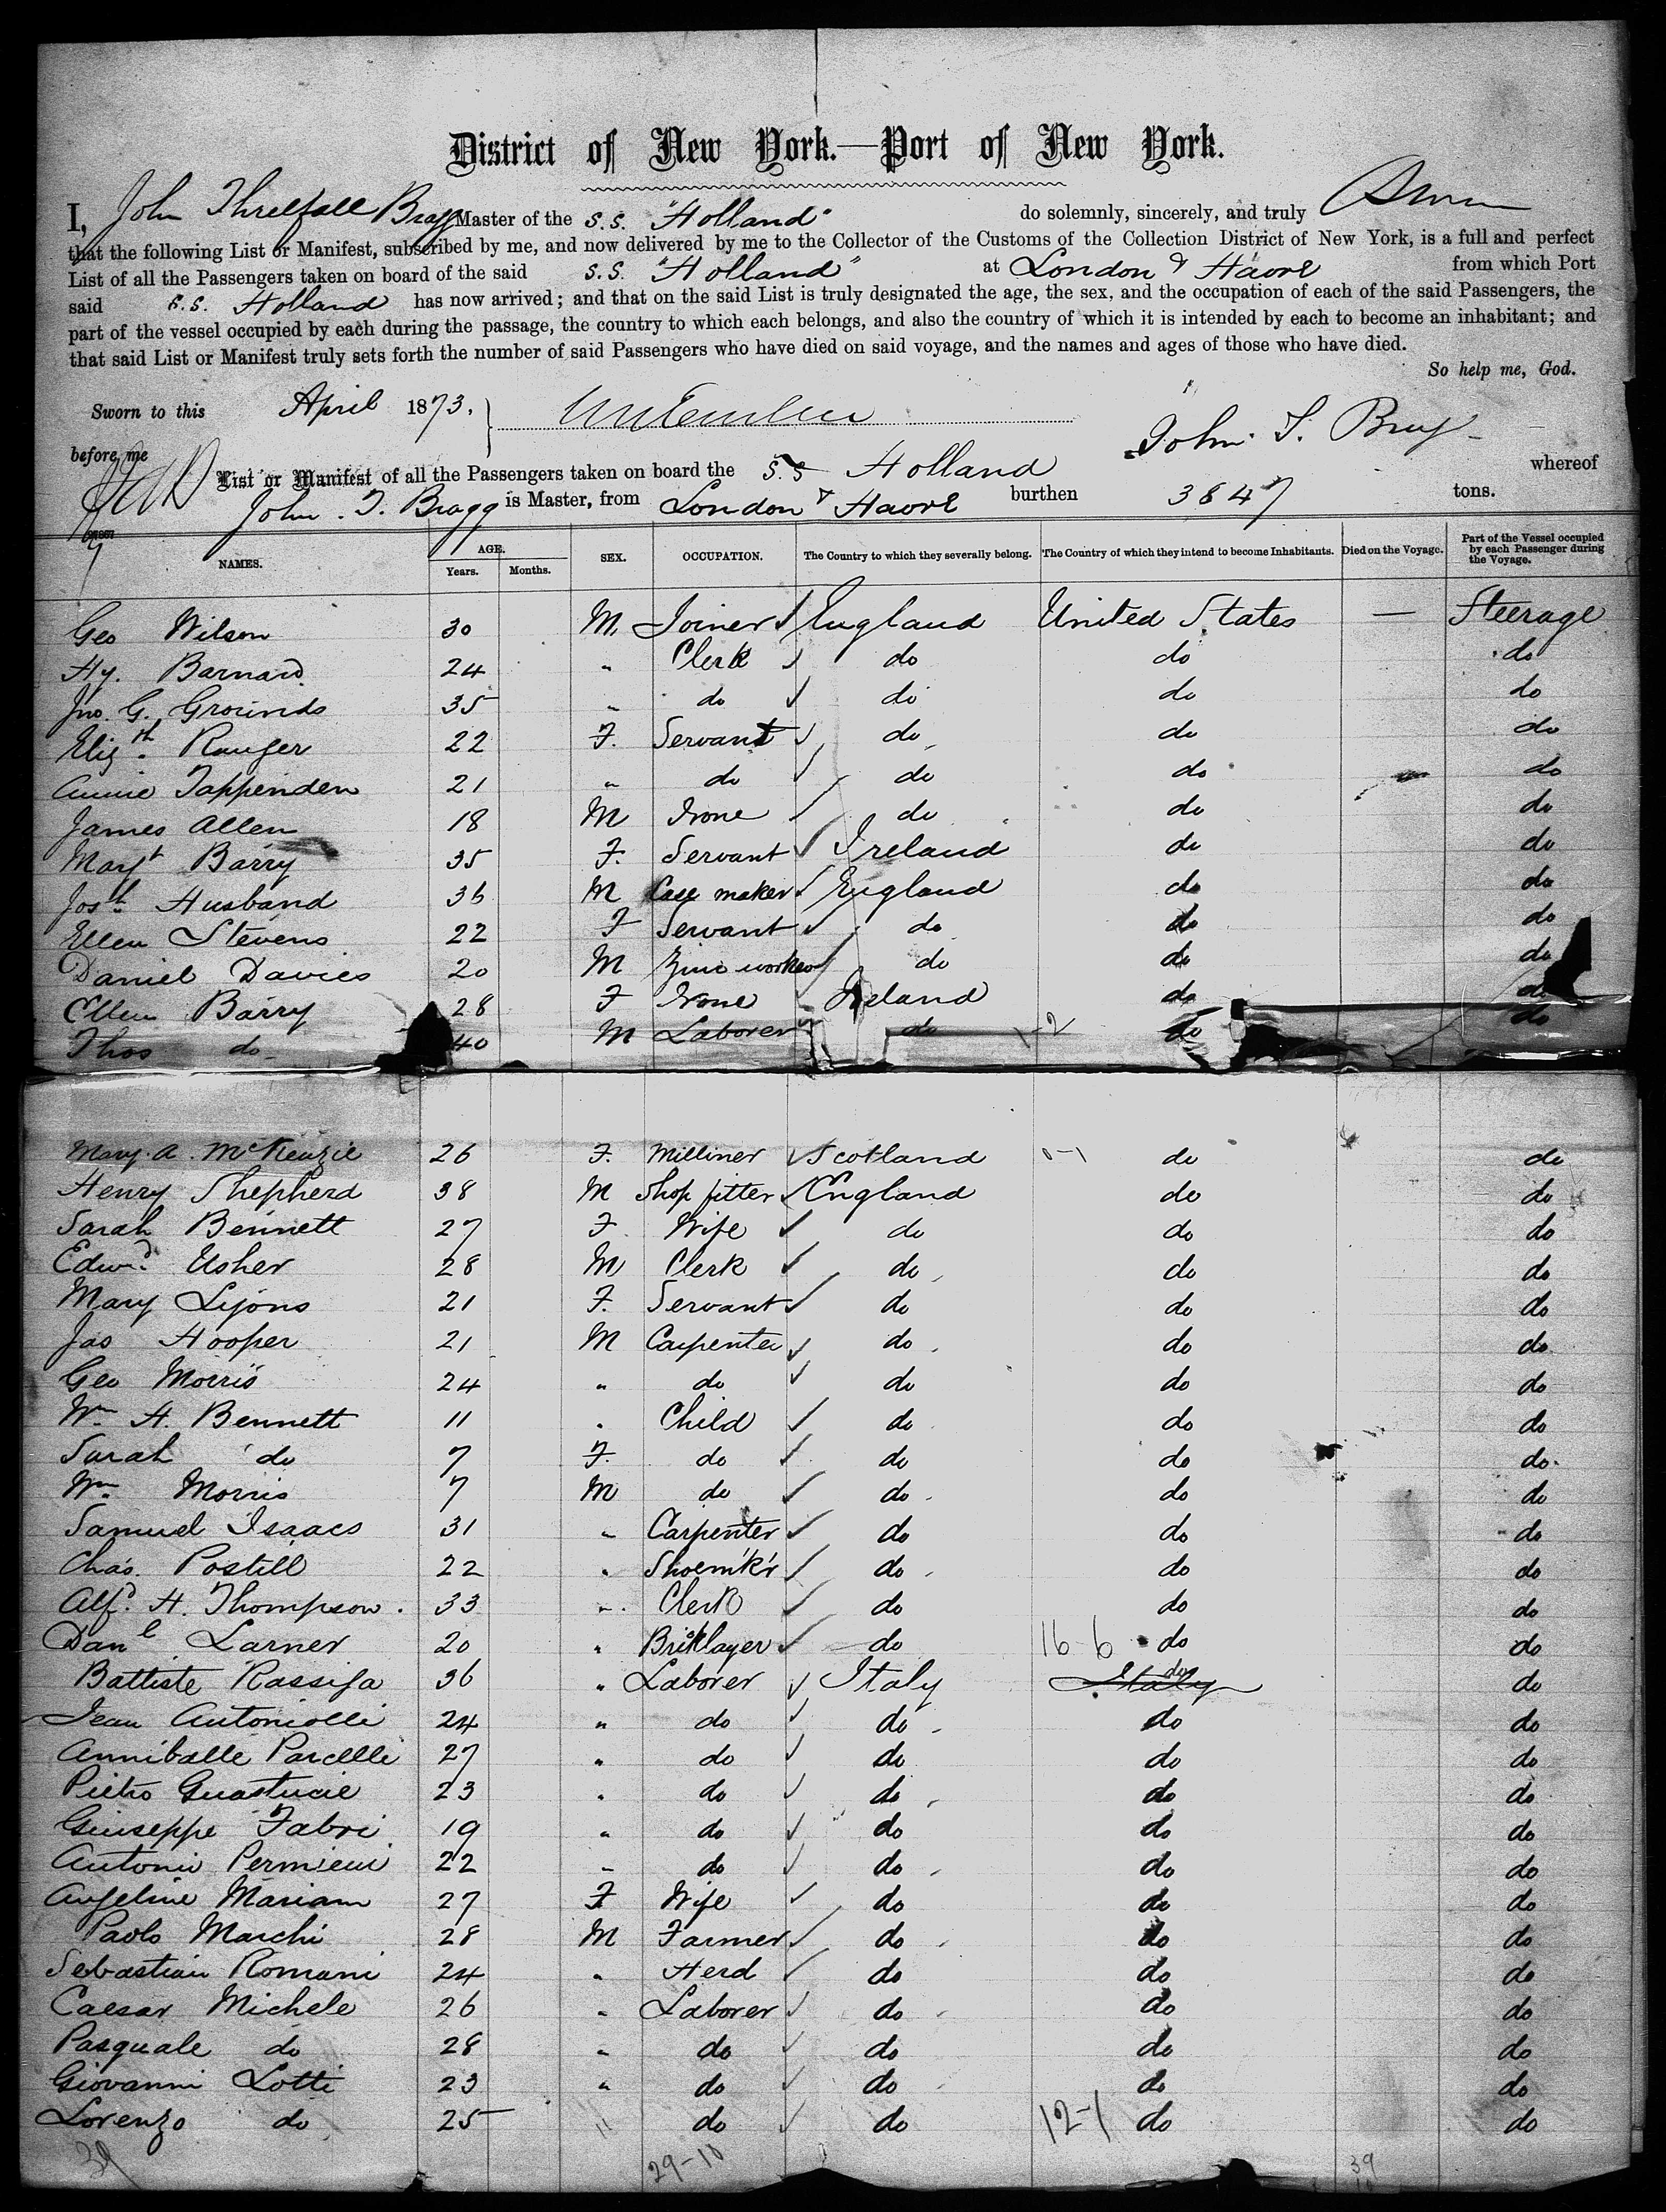 District of New York.—Port of New York.
I, John Threlfall Bragg Master of the S.S. "Holland" do solemnly, sincerely, and truly
that the following List or Manifest, subscribed by me, and now delivered by me to the Collector of the Customs of the Collection District of New York, is a full and perfect
List of all the Passengers taken on board of the said S.S. "Holland" at London & Havre from which Port
said S.S. Holland has now arrived; and that on the said List is truly designated the age, the sex, and the occupation of each of the said Passengers, the
part of the vessel occupied by each during the passage, the country to which each belongs, and also the country of which it is intended by each to become an inhabitant; and
that said List or Manifest truly sets forth the number of said Passengers who have died on said voyage, and the names and ages of those who have died.
So help me, God.
Sworn to this April 1873.
before me John T. Bragg
List or Manifest of all the Passengers taken on board the S.S Holland whereof
John. T. Bragg is Master, from London & Havre burthen 3847 tons.
NAMES. AGE. SEX. OCCUPATION. The Country to which they severally belong. The Country of which they intend to become Inhabitants. Died on the Voyage. Part of the Vessel occupied by each Passenger during the Voyage.
Years. Months.
Geo Wilson 30 M. Joiner England United States — Steerage
Hy. Barnard 24 " Clerk do do do
Jno. G. Grounds 35 " do do do do
Elizth Ranger 22 F. Servant do do do
Annie Tappenden 21 " do do do do
James Allen 18 M None do do do
Margt Barry 35 F. Servant Ireland do do
Josh Husband 36 M Case maker England do do
Ellen Stevens 22 F Servant do do do
Daniel Davies 20 M Zinc worker do do do
Ellen Barry 28 F None Ireland do do
Thos do 40 M Laborer do 1-2 do do
Mary. A. McKenzie 26 F. Milliner Scotland 0-1 do do
Henry Shepherd 38 M Shop fitter England do do
Sarah Bennett 27 F. Wife do do do
Edwd. Usher 28 M Clerk do do do
Mary Lyons 21 F. Servant do do do
Jas Hooper 21 M Carpenter do do do
Geo Morris 24 " do do do do
Wm H. Bennett 11 " Child do do do
Sarah do 7 F. do do do do
Wm Morris 7 M do do do do
Samuel Isaacs 31 " Carpenter do do do
Chas. Postill 22 " Shoem'k'r do do do
Alfd. H. Thompson. 33 " Clerk do do do
Danl Larner 20 " Bricklayer do 16-6 do do
Battiste Rassiga 36 " Laborer Italy Italy do do
Jean Antoniolli 24 " do do do do
Anniballe Parcelle 27 " do do do do
Pietro Guastucie 23 " do do do do
Giuseppe Fabri 19 " do do do do
Antonio 22 " do do do do
Angeline Mariam 27 F Wife do do do
Paolo Marchi 28 M Farmer do do do
Sebastian Romani 24 " Herd do do do
Caesar Michele 26 " Laborer do do do
Pasquale do 28 " do do do do
Giovanni Lotti 23 " do do do do
Lorenzo do 25 " do do 12-1 do do
39 29-10 39